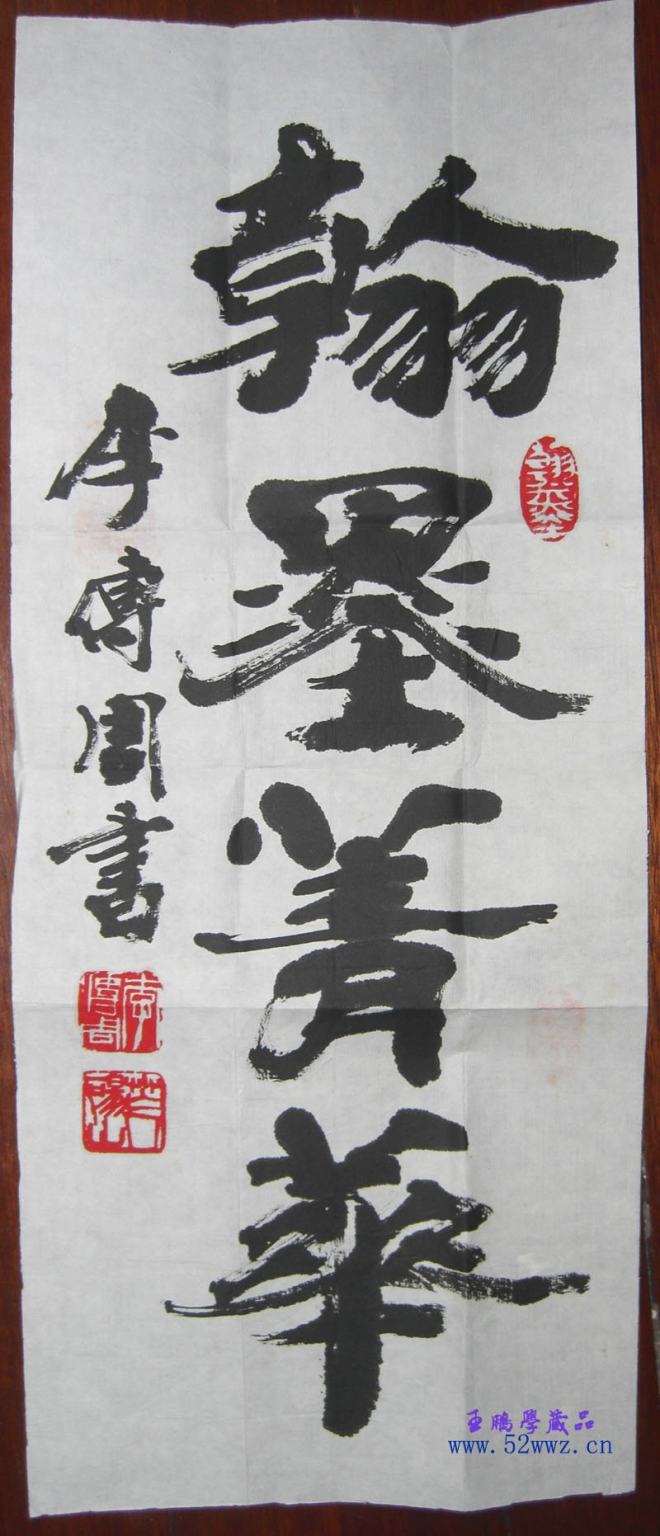 翰墨菁華
李傳周書
王鵬學藏品
www.52wwz.cn